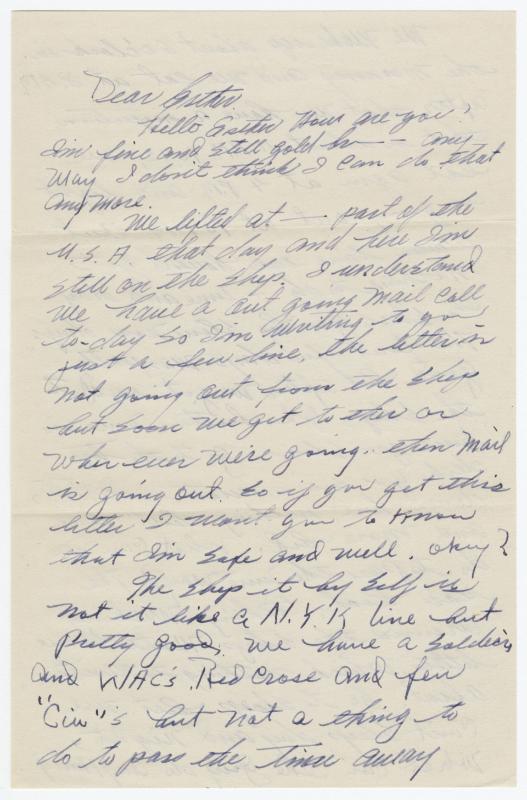 Dear Esther.
Hello Esther How are you,
I'm fine and still gold br — any
way I don't think I can do that
anymore.
We lifted at — part of the
U.S.A. that day and here I'm
still on the ship. I understand
we have a out going Mail call
to-day so I'm writing to you
just a few line, the letter in
not going out from the ship
but soon we get to ther or
wher ever we're going. then Mail
is going out. So if you get this
letter I want you to know
that I'm safe and well. okay?
The ship it by self is
not it like a N.Y.K line but
pretty good, we have a soldiers
and WAC's. Red Crose and few
"Civ"s but not a thing to
do to pass the time away